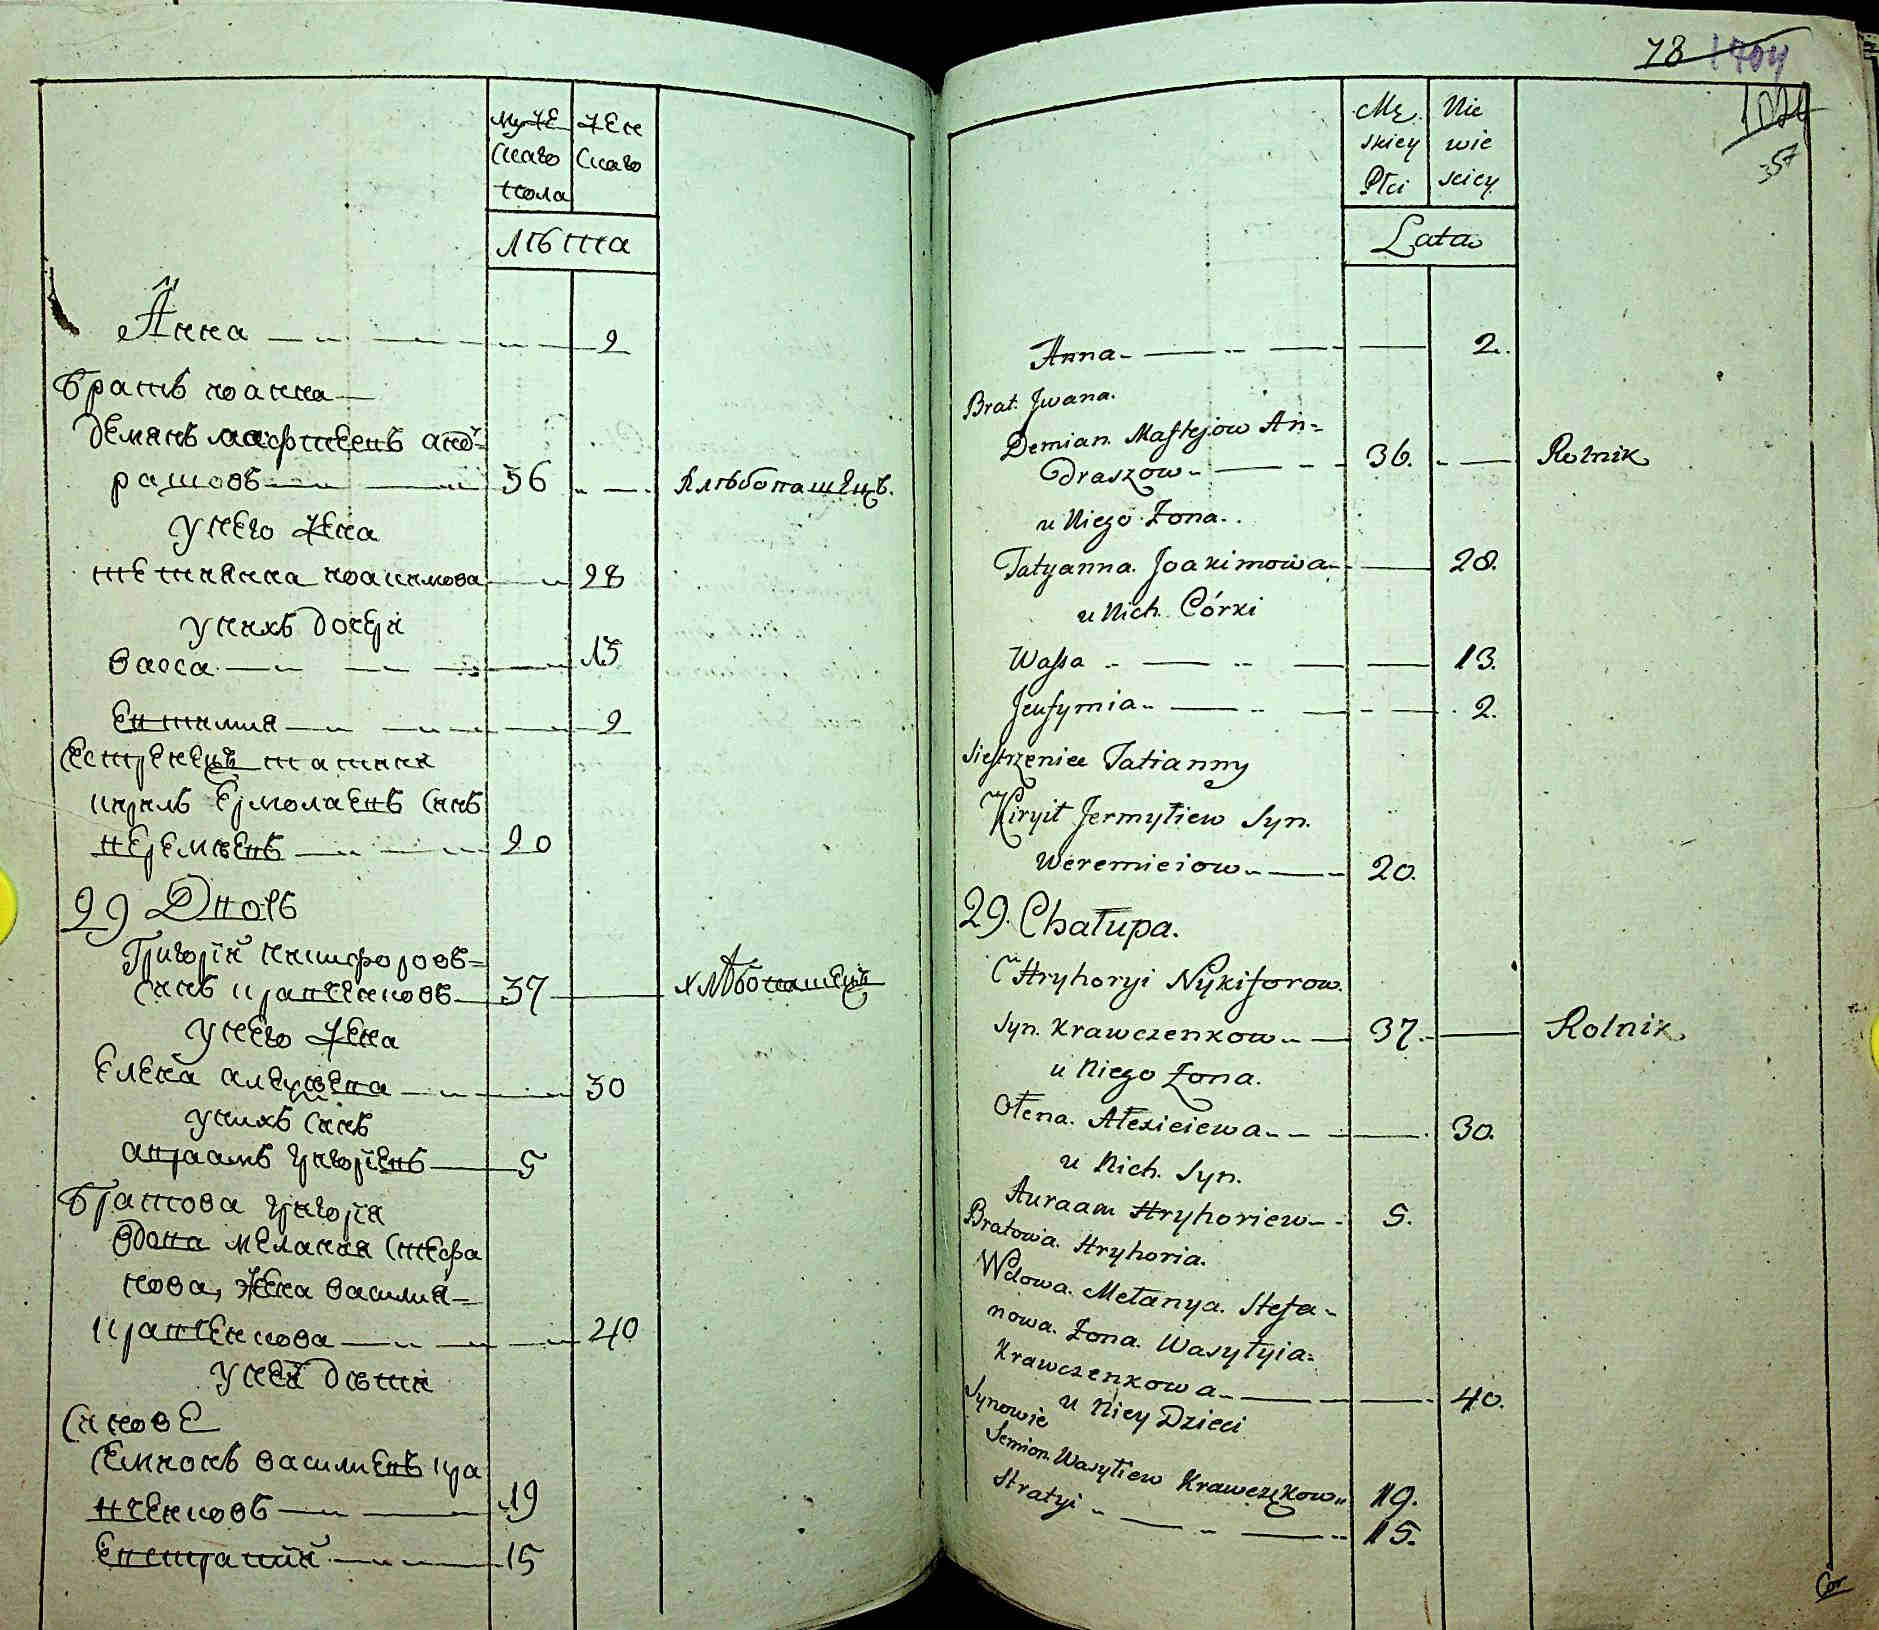 муже
скаго
пола
жен
скаго
лѣта
Анна 2
Братъ иоанна
демянъ матфеевъ анд-
рашовъ 36 хлѣбопашецъ.
у него жена
тетиянна иоакимова 28
у нихъ дочери
васса 13
Евтимия 2
Сестренецъ татияни
кирилъ Ермолаевъ синъ
веремѣевъ 20
29 Дворъ
Григорій никифоровъ=
синъ кравченковъ 37 хлѣбопашецъ
у него жена
Елена алеѯѣева 30
у нихъ синъ
авраамъ григоріевъ 5
Братова григорія
вдова мелания стефа
нова, жена василия=
кравченкова 40
у ней дѣти
синове
Семионъ василиевъ кра
вченковъ 19
Евстратий 15
78 1704
1024
357
Mę.
skiey
Płci
Nie
wie
sciey
Lata
Anna 2.
Brat. Jwana.
Demian. Mastejow An=
draszow 36. Rolnik
u Niego Zona..
Tatyanna. Joakimowa 28.
u Nich. Córki
Wassa 13.
Jeufymia 2.
Siestrzeniec Tatianny
Kirył Jermyłiew Syn.
Weremieiow 20.
29. Chałupa.
Hryhoryi Nykiforow.
Syn. Krawczenkow 37. Rolnik
u Niego Zona.
Ołena. Ałexieiewa 30.
u Nich. Syn.
Auraam Hryhoriew 5.
Bratowa. Hryhoria.
Wdowa. Mełanya. Stefa-
nowa. Zona. Wasyłyia=
Krawczenkowa 40.
u Niey Dzieci
Synowie
Semion. Wasyłiew Krawczękow 19.
Stratyi 15.